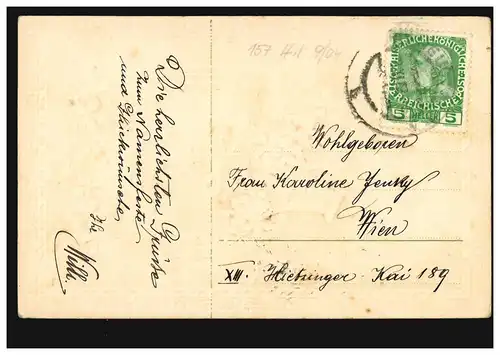 Die herzlichsten Grüsse
zum Namensfeste
und Glückwünsche
Ihr
Willi.
157 9/04
KAISERLICHE KÖNIGLICHE
ÖSTERREICHISCHE POST
5 HELLER 5
Wohlgeboren
Frau Karoline
Wien
XIII. Hietzinger-Kai 189